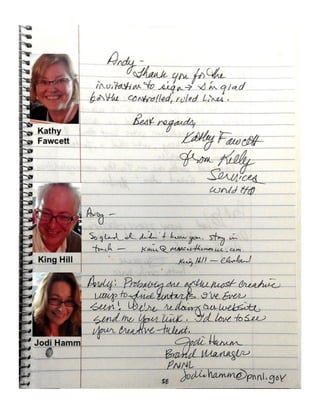 Andy –
Thank you for the
invitation to sign → I'm glad
for the controlled, ruled lines.
Best regards,
Kathy Fawcett
from Kelly
Services
World HQ
Kathy
Fawcett
Andy –
So glad I didn't you. Stay in
touch –
King Hill – Cleveland
King Hill
Andy: Probably one of the most creative
ways to find contacts I've ever
seen! We're redoing our website
send me your link. I'd love to see
your creative talent.
Jodi Hamm
Brand Manager
PNNL
jodi.hamm@pnnl.gov
Jodi Hamm
58